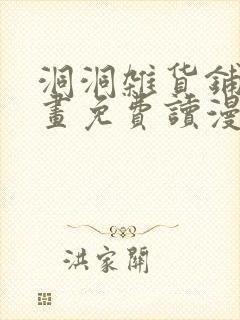 洞洞雜貨鋪
畫免費讀漫
洪家開